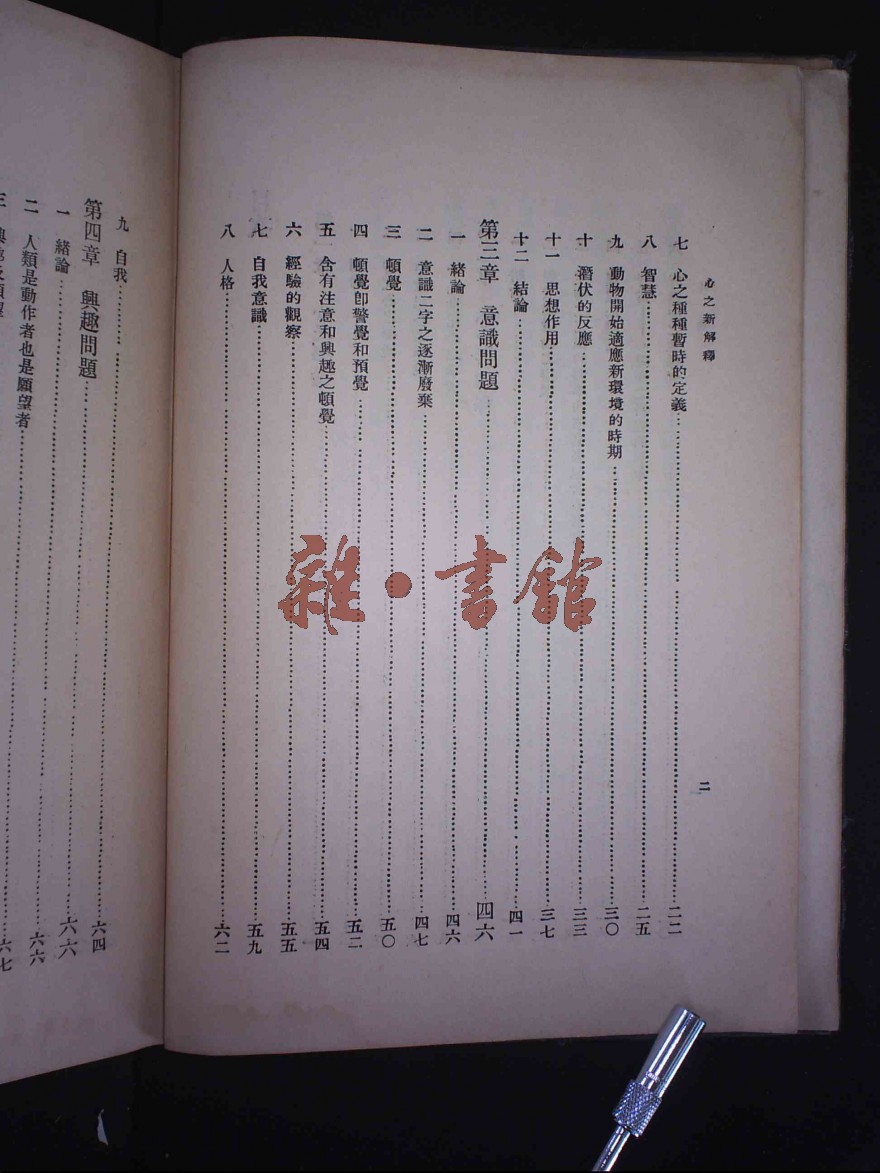 心之新解釋
二
七 心之種種暫時的定義……二二
八 智慧……二五
九 動物開始適應新環境的時期……三〇
十 潛伏的反應……三三
十一 思想作用……三七
十二 結論……四一
第三章 意識問題……四六
一 緒論……四六
二 意識二字之逐漸廢棄……四七
三 頓覺……五〇
四 頓覺卽警覺和預覺……五二
五 含有注意和興趣之頓覺……五四
六 經驗的觀察……五五
七 自我意識……五九
八 人格……六二
九 自我……六四
第四章 興趣問題……六六
一 緒論……六六
二 人類是動作者也是願望者……六六
三 興趣及願望……六七
雜·書館